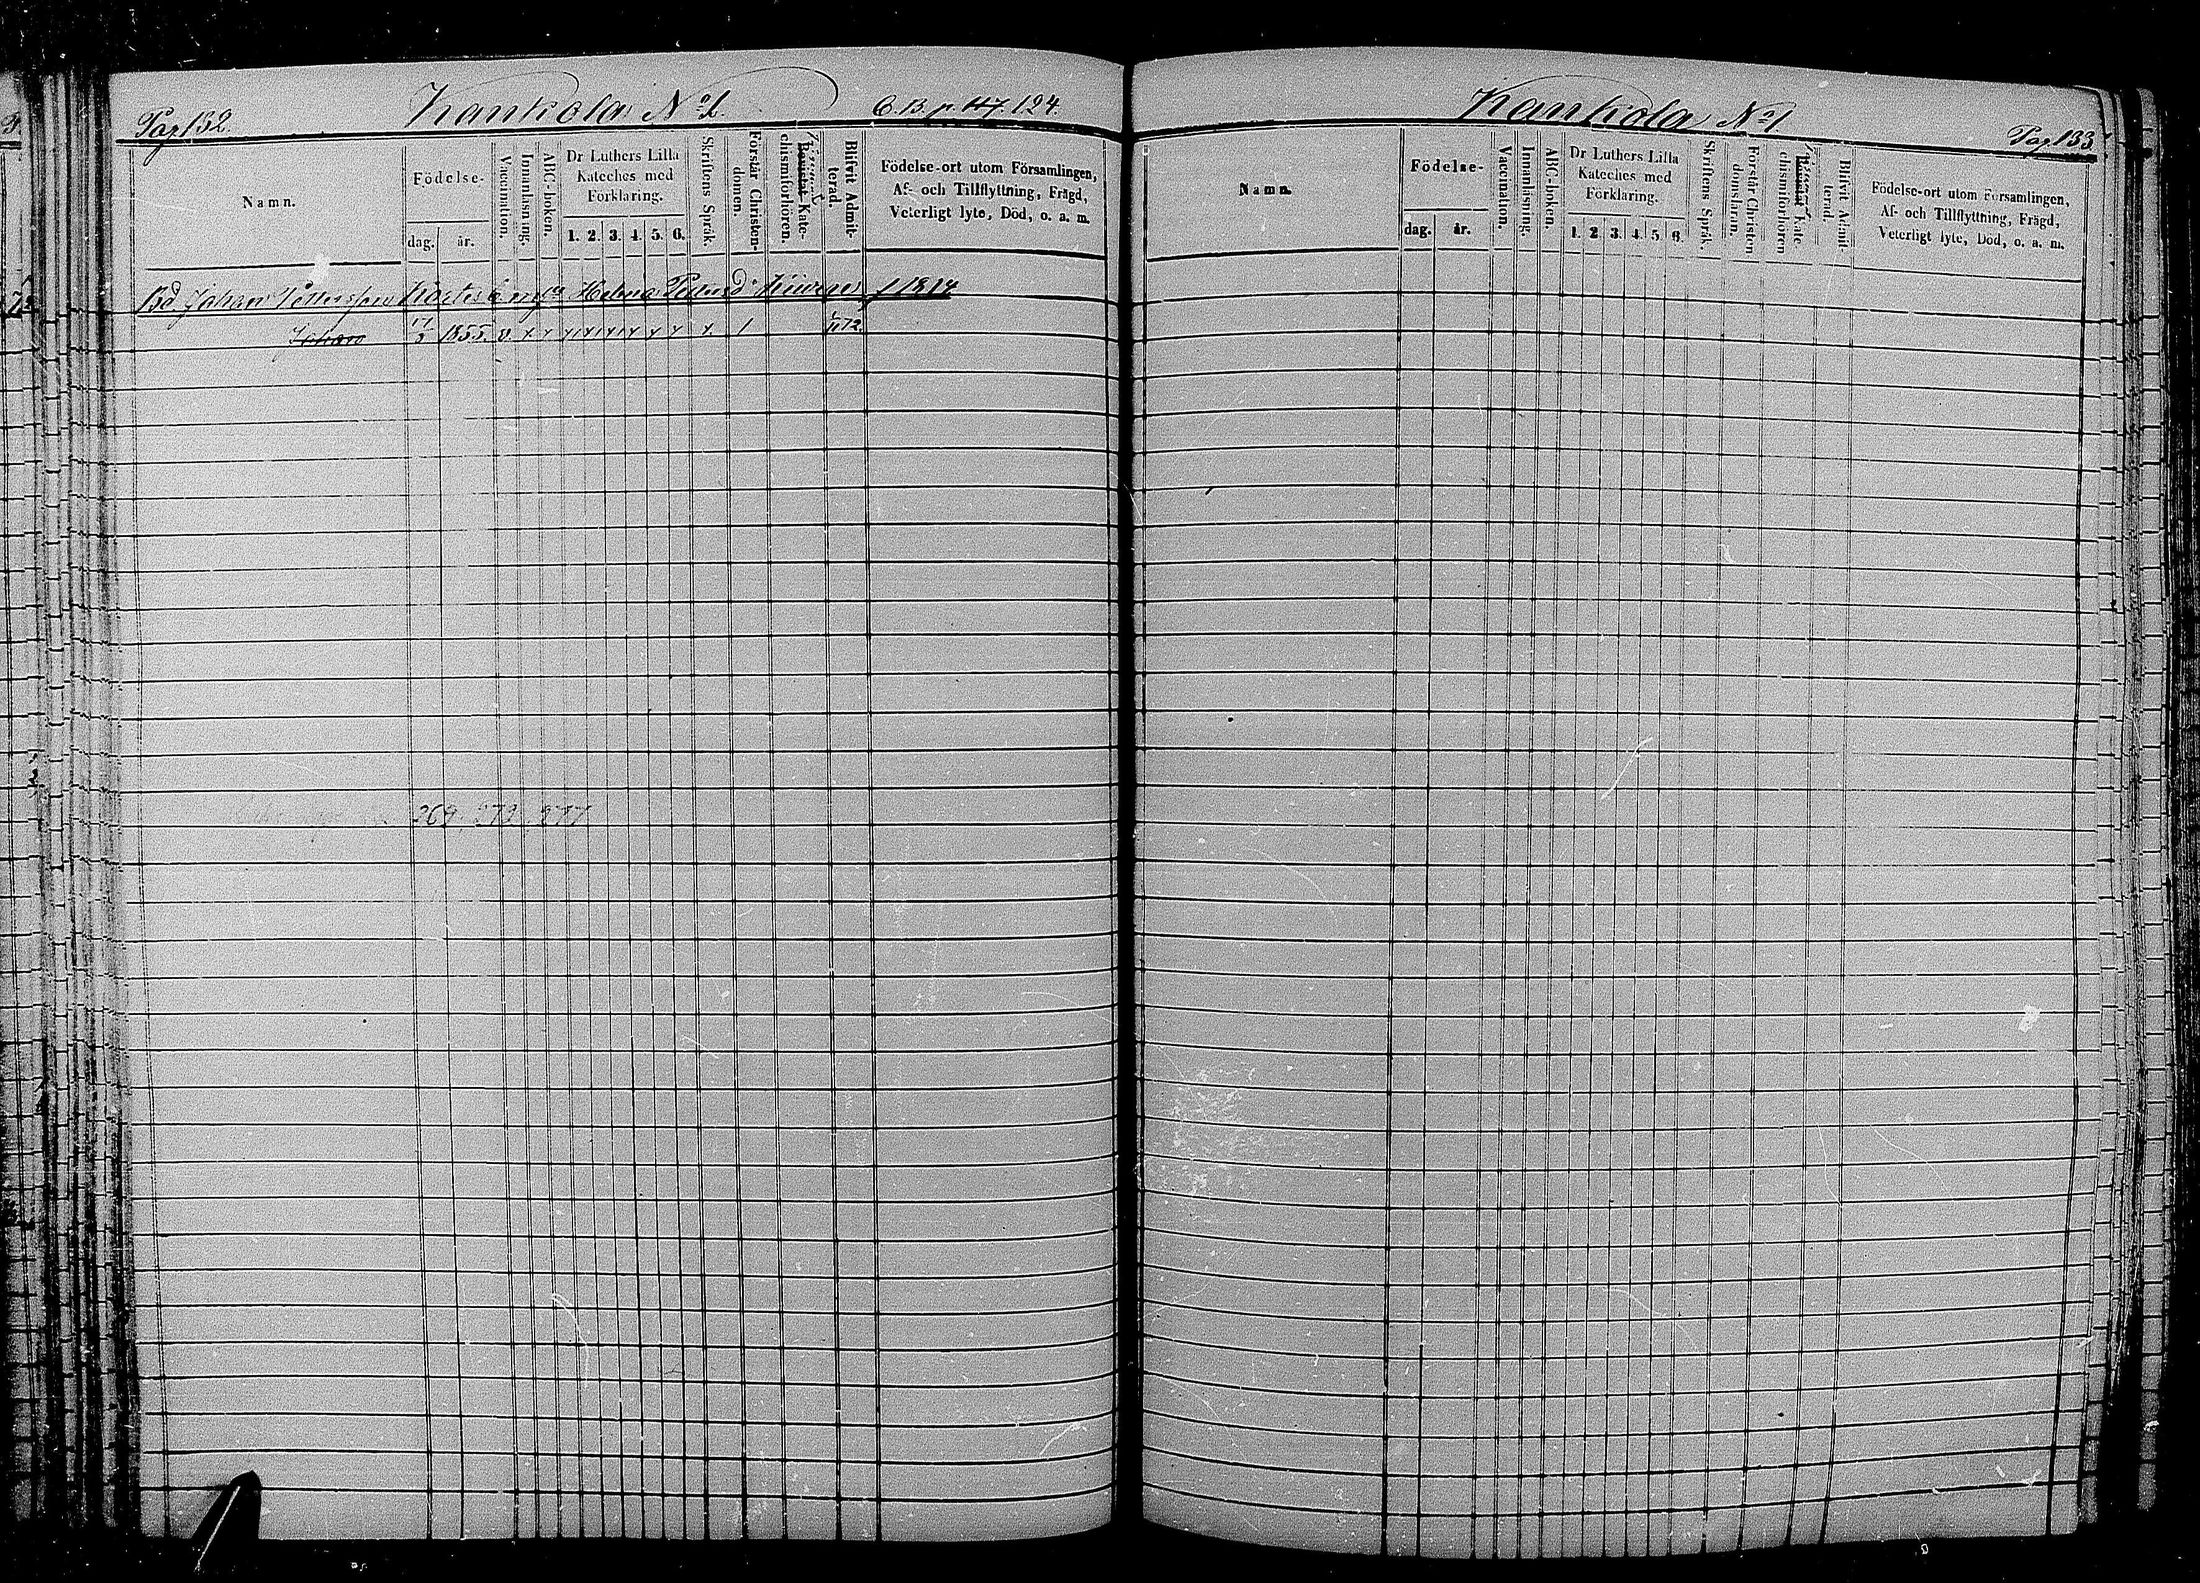 Pag 132.
Kankola No 1.
C. B. p. 117. 124.
Namn.
Födelse-
dag. år.
Vaccination.
Innanläsning.
ABC-boken.
Dr Luthers Lilla
Kateches med
Förklaring.
1. 2. 3. 4. 5. 6.
Skriftens Språk.
Förstår Christen-
domen.
Bevistat Kate-
chismiförhören.
Blifvit Admit-
terad.
Födelse-ort utom Församlingen,
Af- och Tillflyttning, Frägd,
Veterligt lyte, Död, o. a. m.
Bd. Johan Pettersson Helena Kiiveres f. 1814
Johan 1855. v. x x x x x x x x x 1 72
269, 273, 277
Kankola No 1
Pag 133
Namn.
Födelse-
dag. år.
Vaccination.
Innanläsning.
ABC-boken.
Dr Luthers Lilla
Kateches med
Förklaring.
1. 2. 3. 4. 5. 6.
Skriftens Språk.
Förstår Christen
domsläran.
Bevistat Kate
chismiförhören
Blifvit Admit
terad.
Födelse-ort utom Församlingen,
Af- och Tillflyttning, Frägd,
Veterligt lyte, Död, o. a. m.